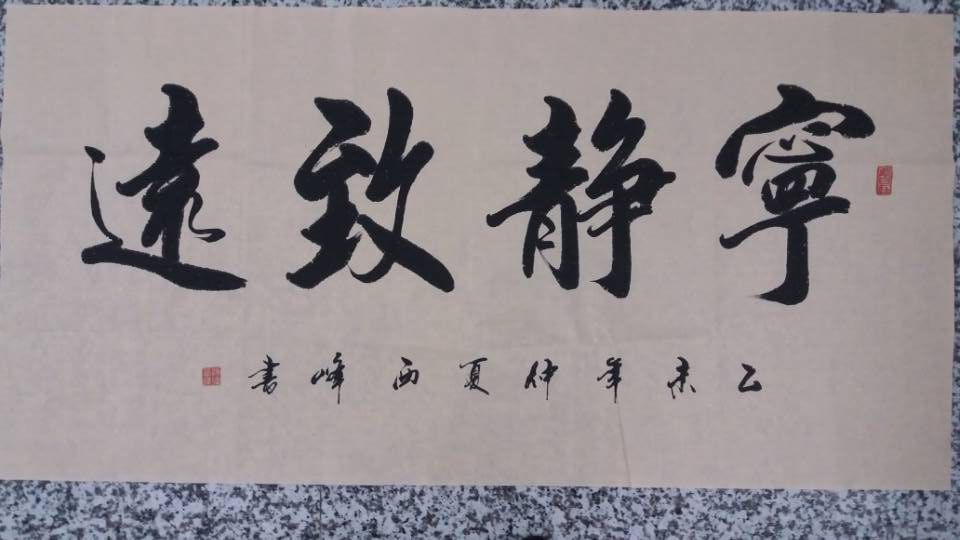 寧静致遠
乙未年仲夏西峰書